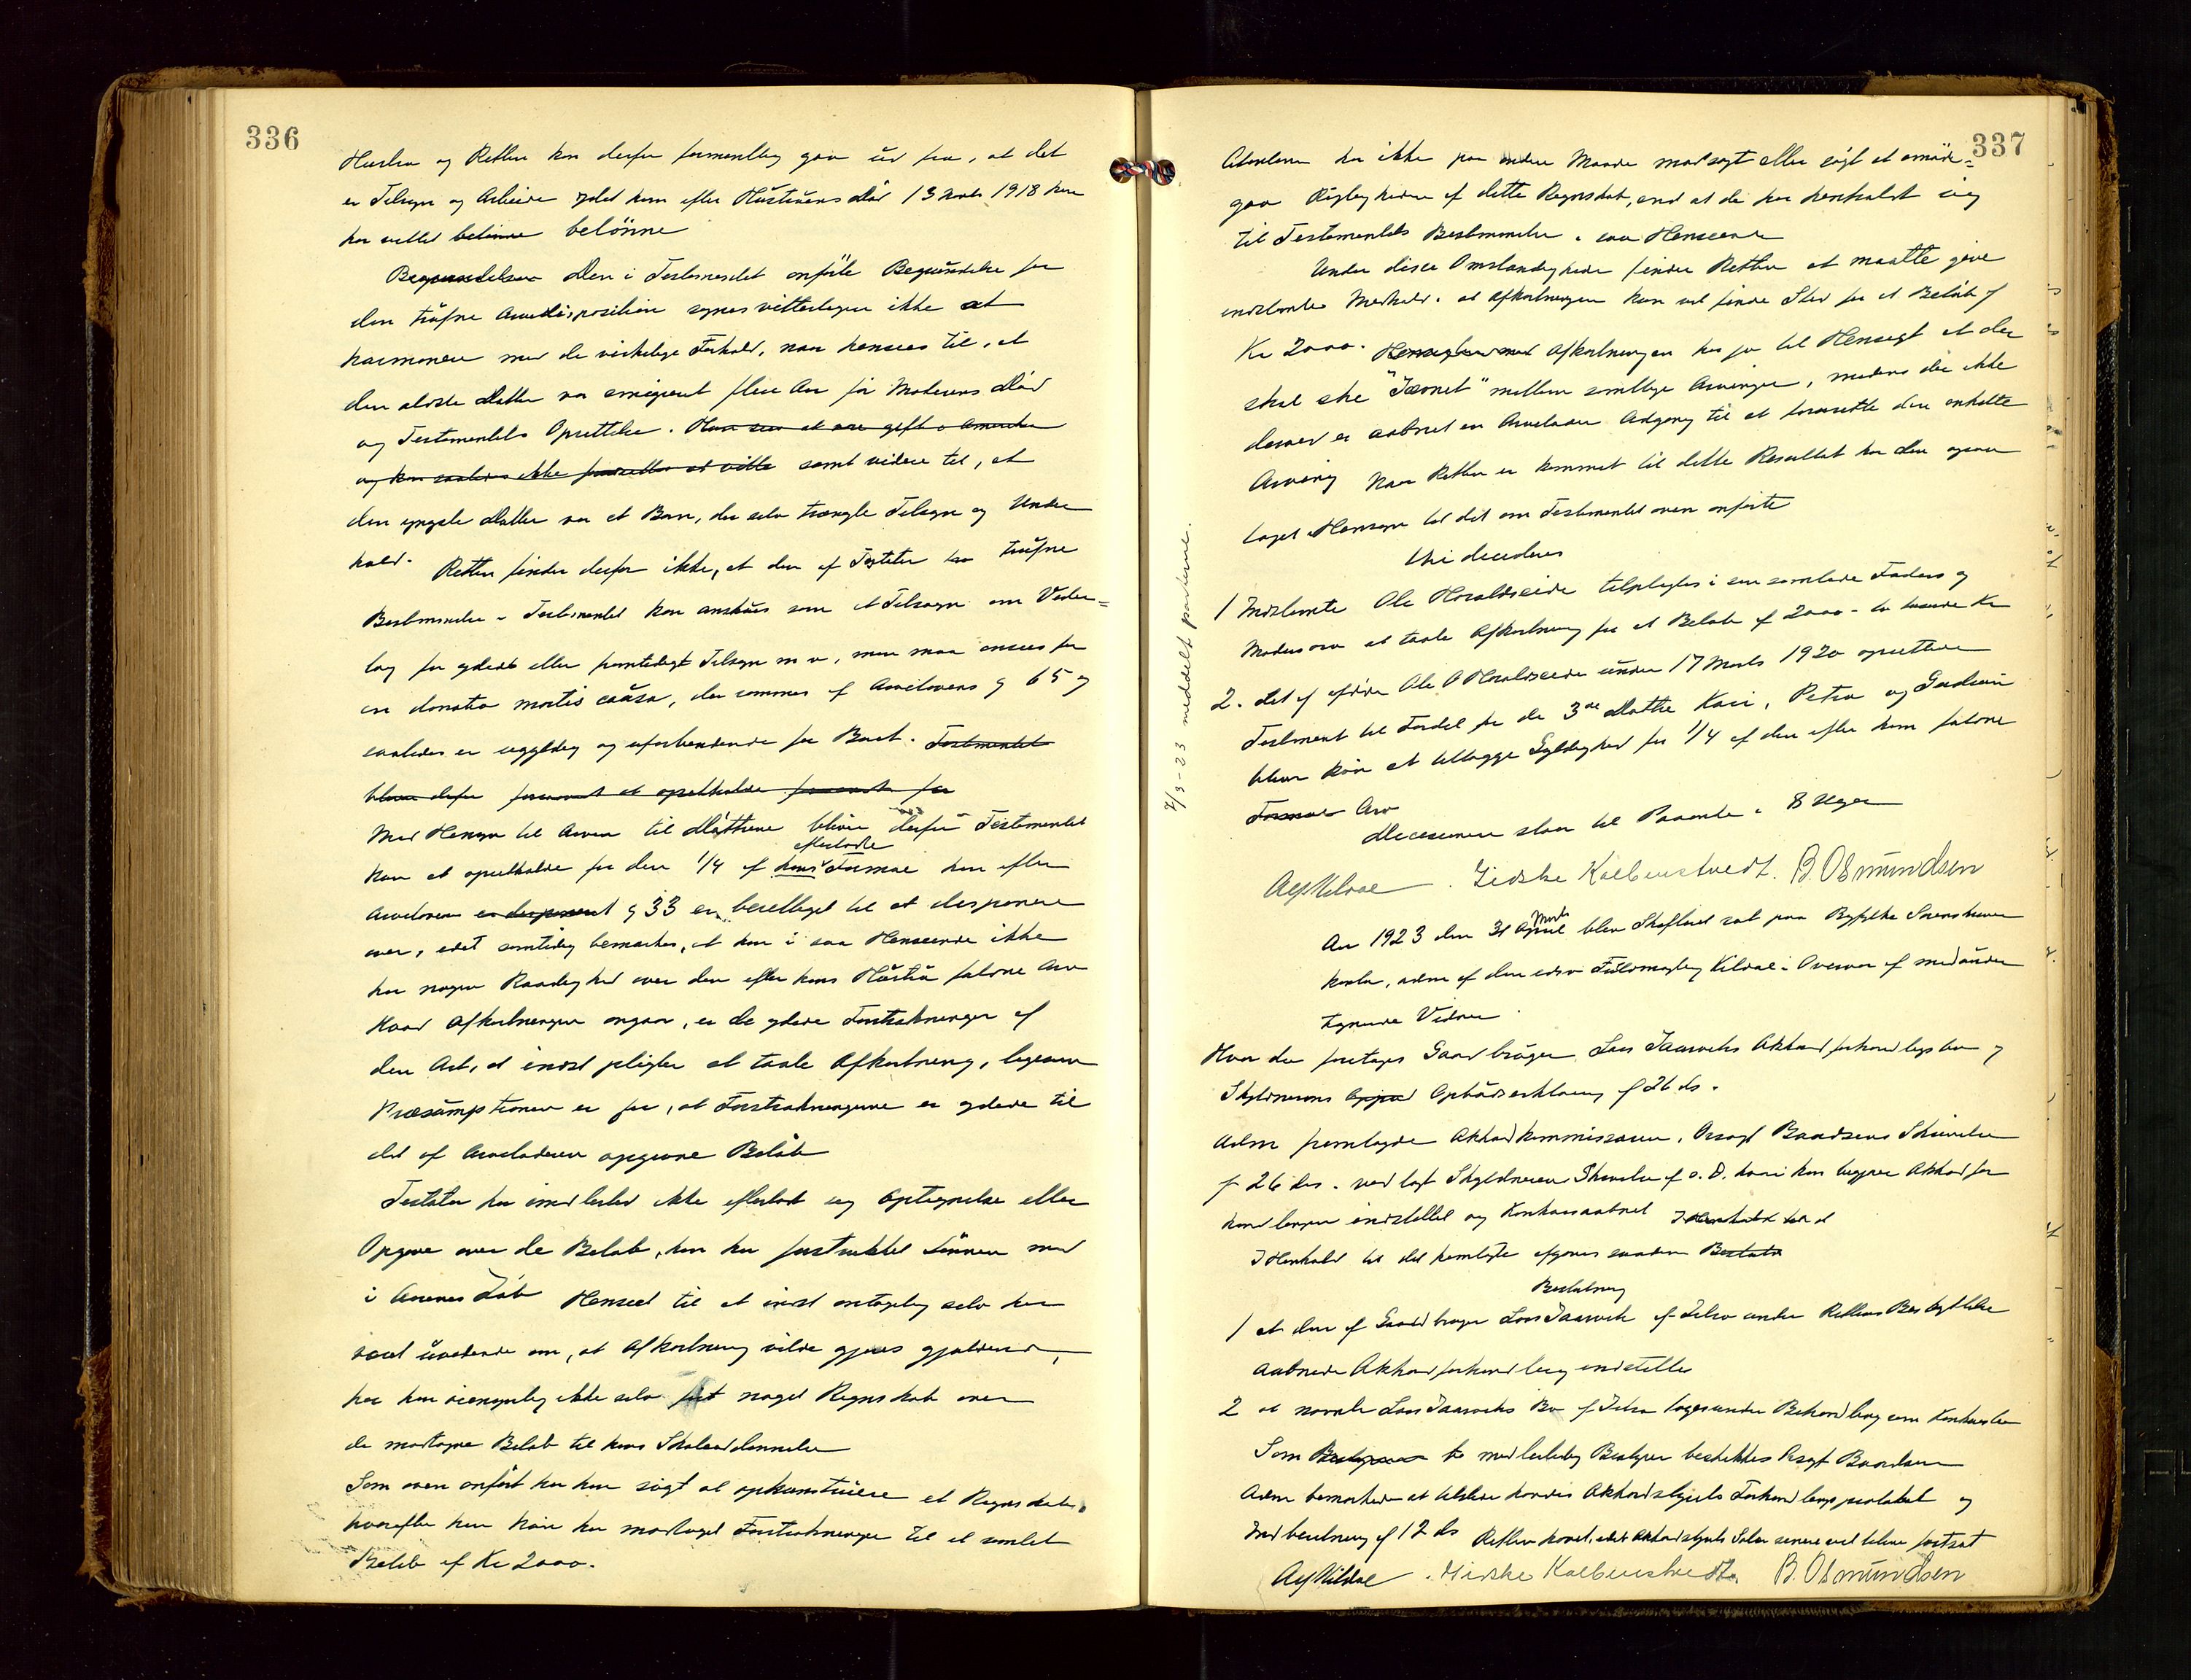 336
Hustru og Retten kan derfor formentlig gaa ud fra, at det
er Tilsyn og Arbeide ydet ham efter Hustruens Död 13 1918 han
har villet belönne belönne
Begrundelsen Den i Testamentet anförte Begrundelse for
den trufne Arvedisposition synes vitterligen ikke at
harmonere med de virkelige Forhold, naar henses til, at
den ældste Datter var emigreret flere Aar för Moderens Död
og Testamentets Oprettelse. Hun sees at være gift i Amerika
og kan saaledes ikke at ville samt videre til, at
den yngste Datter var et Barn, der selv trængte Tilsyn og Under
hold. Retten finder derfor ikke, at den af Testator saa trufne
Bestemmelse i Testamentet kan ansees som et Tilsagn om Veder=
lag for ydet eller fremtidigt Tilsyn m v, men maa ansees for
en donatio mortis causa, der rammes af Arvelovens § 65 og
saaledes er ugyldig og uforbindende for Boet. Testamentet
bliver derfor at opretholde for
Med Hensyn til Arven til Döttrene bliver derfor Testamentet
kun at opretholde for den 1/4 af hans efterladte Formue han efter
Arveloven er disponeret § 33 er berettiget til at disponere
over, idet samtidig bemærkes, at han i saa Henseende ikke
har nogen Raadighed over den efter hans Hustru faldne Arv
Hvad Afkortningen angaar, er de ydede Forstrækninger af
den Art, at indst pligter at taale Afkortning, ligesom
Præsumptionen er for, at Forstrækningerne er ydede til
det af Arveladeren opgivne Belöb
Testator har imidlertid ikke efterladt sig Optegnelse eller
Opgave over de Belöb, han har forstrukket Sönnen med
i Aarenes Löb Henseet til at indst antagelig selv har
været uvidende om, at Afkortning vilde gjöres gjældende,
har han rimeligvis ikke selv fört noget Regnskab over
de modtagne Belöb til hans Skoleuddannelse
Som oven anfört har han sögt at opkonstruere et Regnskab,
hvorefter han kun har modtaget Forstrækninger til et samlet
Belöb af Kr 2000.
337
Citanterne har ikke paa anden Maade modsagt eller sögt at omgöre=
gaa Rigtigheden af dette Regnskab, end at de har henholdt sig
til Testamentets Bestemmelse i saa Henseende
Under disse Omstændigheder finder Retten at maatte give
indstevnte Medhold i at Afkortningen kun vil finde Sted for et Belöb af
Kr 2000. Afkortningen har jo til Hensigt at der
skal ske "Jævnet" mellem samtlige Arvinger, medens der ikke
derved er aabnet en Arvelader Adgang til at forurette den enkelte
Arving Naar Retten er kommet til dette Resultat har den ogsaa
taget Hensyn til det om Testamentet oven anförte
thi decideres
1 Indstevnte Ole Haraldseide tilpligtes i sin samlede Fædrens og
Mödrenarv at taale Afkortning for et Belöb af 2000 - to tusende Kr
2. Det af afdöde Ole O Haraldseide under 17 Marts 1920 oprettede
Testament til Fordel for de 3de Döttre Kari, Petra og Gudrun
bliver kun at tillægge Gyldighed for 1/4 af den efter ham faldne
Formue Arv
Decisionen staar til Paaanke i 8 Uger
Aeg Kildal . Gidske Kolbenstvedt. B. Osmundsen
7/3-23 meddelt partene.
Aar 1923 den 31 April Marts blev Skifteret sat paa Ryfylke Sorenskriver
kontor, adm af den edsv Fuldmægtig Kildal i Overvær af medunder
tegnede Vidner
Hvor da foretages Gaardbruger Lars Akkordforhandlings bo og
Skyldnerens Opbudserklæring af 26 ds.
Adm fremlagde Akkordkommissærens, Ovsagf Skrivelse
af 26 ds. ved lagt Skyldnerens Skrivelse af s. D. hvori han begjærer Akkordfor
handlingen indstillet og Konkursaabnet I Henhold til d
I Henhold til det fremlagte afgaves saadan Beslutn
Beslutning
1 at den af Gaardbruger Lars af Jelsa under Rettens Beskyttelse
aabnede Akkordforhandling indstilles
2 at nævnte Lars Bo af Jelsa tages under Behandling som Konkursbo
Som Bestyrer to midlertidig Bestyrer beskikkes Ovsagf
Adm bemærkede at tilstede havdes Akkordstyrets Forhandlingsprotokol og
Indberetning af 12 ds Retten hævet, idet Akkordstyrets Salær senere vil blive fastsat
Aeg Kildal . Gidske Kolbenstvedt. B. Osmundsen